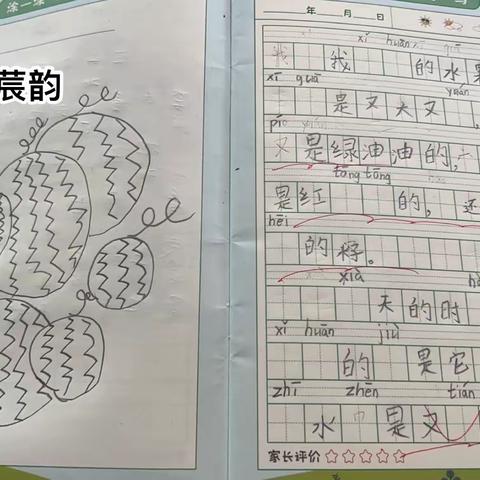 涂一涂
苠韵
年 月 日
xǐ huān
我 的水果
xī guā yuán
是又大又
pí
是绿油油的,
tōng tōng
是红 的, 还
hēi
的籽。
xià
天的时
xǐ huān jiù
的 是它
zhī zhēn tián
水 是又
家长评价 ☆☆☆☆☆